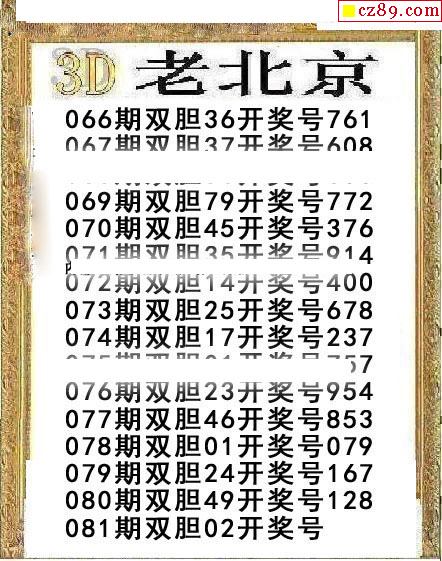 cz89.com
3D 老北京
066期双胆36开奖号761
067期双胆37开奖号608
069期双胆79开奖号772
070期双胆45开奖号376
071期双胆35开奖号914
072期双胆14开奖号400
073期双胆25开奖号678
074期双胆17开奖号237
076期双胆23开奖号954
077期双胆46开奖号853
078期双胆01开奖号079
079期双胆24开奖号167
080期双胆49开奖号128
081期双胆02开奖号